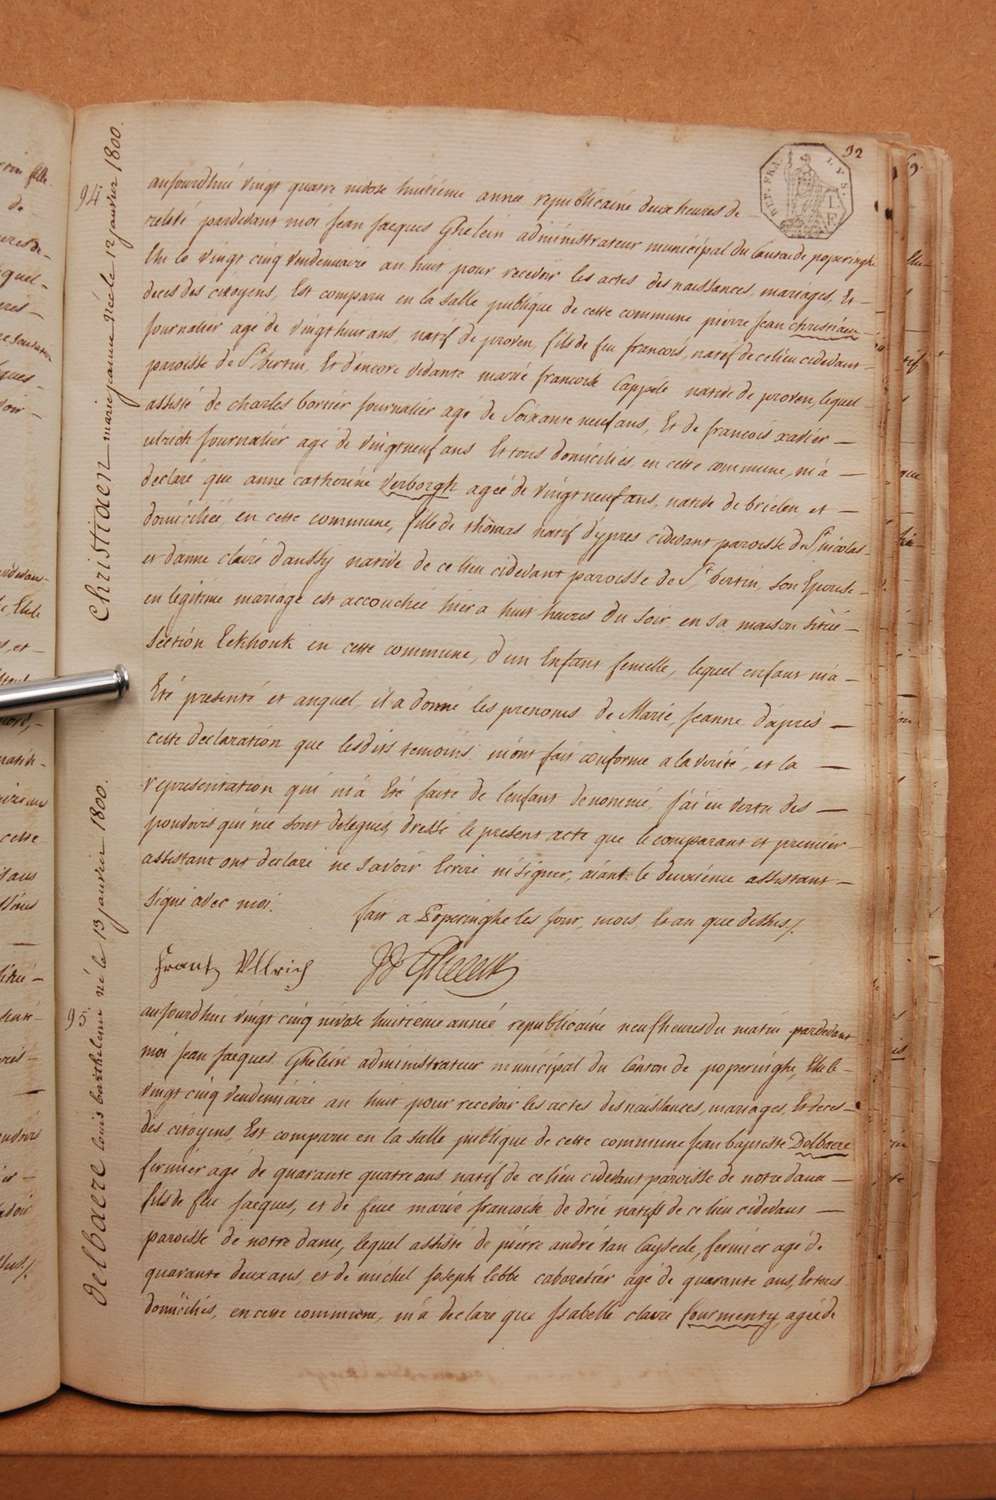 92
REP. FRA.
94.
christiaen marie jeanne née le 12 janvier 1800.
aujourdhui vingt quatre nivôse huitiéme année republicaine deux heures de
relevé pardevant moi Jean Jacques Ghelein administrateur municipal du Canton de poperinghe
Elu le vingt cinq vendemiaire an huit pour recevoir les actes des naissances, mariages, Et –
deces des citoyens, Est comparu en la salle publique de cette commune pierre Jean christiaen
Journalier agé de vingt huit ans, natif de proven, fils de feu francois, natif de ce lieu cidevant –
paroisse de St bertin, Et d'encore vivante marie francoise Cappele native de proven, lequel
assisté de charles bonier Journalier agé de Soixante neuf ans, Et de francois xavier –
ulrich Journalier agé de vingt neuf ans Et tous domiciliés en cette commune, m'a –
declaré que anne catherine verborgh ageé de vingt neuf ans, native de brielen et –
domiciliée en cette commune, fille de thomas natif d'ypres cidevant paroisse de St nicolas –
et d'anne claire daussy native de ce lieu cidevant paroisse de St bertin, son Epouse –
en legitime mariage est accouchée hier a huit heures du soir en sa maison située –
Section Eekhouk en cette commune, d'un Enfant femelle, lequel enfant m'a –
Eté presenté et auquel il a donné les prenoms de Marie, Jeanne d'après –
cette declaration que lesdits temoins m'ont fait conforme a la verité, et la –
representation qui m'a Eté faite de l'enfant denommé, j'ai en vertu des –
pouvoirs qui me sont delegués dressé le present acte que le comparant et premier –
assistant ont declaré ne savoir Ecrire ni signer, aiant le deuxieme assistant –
signé avec moi.
fait a Poperinghe les jour, mois, Et an que dessus /.
Frantz Ullrich
95.
delbaere louis barthelemi né le 13 janvier 1800.
aujourdhui vingt cinq nivôse huitiéme année republicaine neuf heures du matin pardevant
moi Jean Jacques Ghelein administrateur municipal du Canton de poperinghe, Elu le –
vingt cinq vendemiaire an huit pour recevoir les actes des naissances, mariages, Et deces –
des citoyens, Est comparu en la salle publique de cette commune Jean baptiste Delbaere
fermier agé de quarante quatre ans natif de ce lieu cidevant paroisse de notre dame –
fils de feu Jacques, et de feue marie francoise de drie natifs de ce lieu cidevant –
paroisse de notre dame, lequel assisté de pierre andré van Cayseele, fermier agé de
quarante deux ans, et de michel Joseph Lebbe cabaretier agé de quarante ans, Et tous
domiciliés, en cette commune, m'a declaré que Isabelle claire fourmenty, ageé de